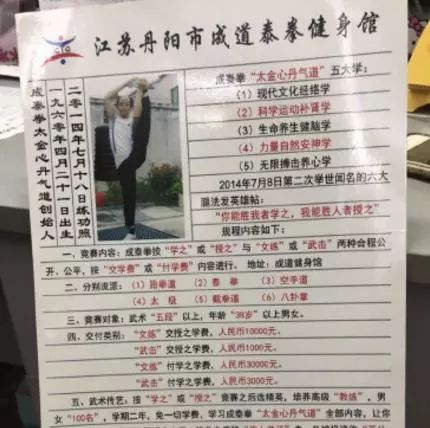 江苏丹阳市成道泰拳健身馆
成泰拳太金心丹气道创始人
一九六零年四月二十一日出生
二零一四年七月十八日练功照
成泰拳“太金心丹气道”五大学：
（1）现代文化经络学
（2）科学运动补肾学
（3）生命养生健脑学
（4）力量自然安神学
（5）无限搏击养心学
2014年7月8日第二次举世闻名的六大
骗法发英雄帖：
“你能胜我者学之，我能胜人者授之”
规程内容如下：
一、竞赛内容：成泰拳按“学之”或“授之”与“文练”或“武击”两种合程公
开、公平，按“交学费”或“付学费”内容进行。 地址：成道健身馆
二、分别流派：（1）跆拳道 （2）泰 拳 （3）空手道
（4）太 极 （5）截拳道 （6）八卦掌
三、竞赛对象：武术“五段”以上，年龄“38岁”以上男女。
四、交付类别：“文练”交授之学费，人民币10000元。
“武击”交授之学费，人民币1000元。
“文练”付学之学费，人民币30000元。
“武击”付学之学费，人民币3000元。
五、武术传艺：按“学之”或“授之”竞赛之后选精英，培养高级“教练”，男
女“100名”，学期二年，免一切学费、学习成泰拳“太金心丹气道”全部内容，让你